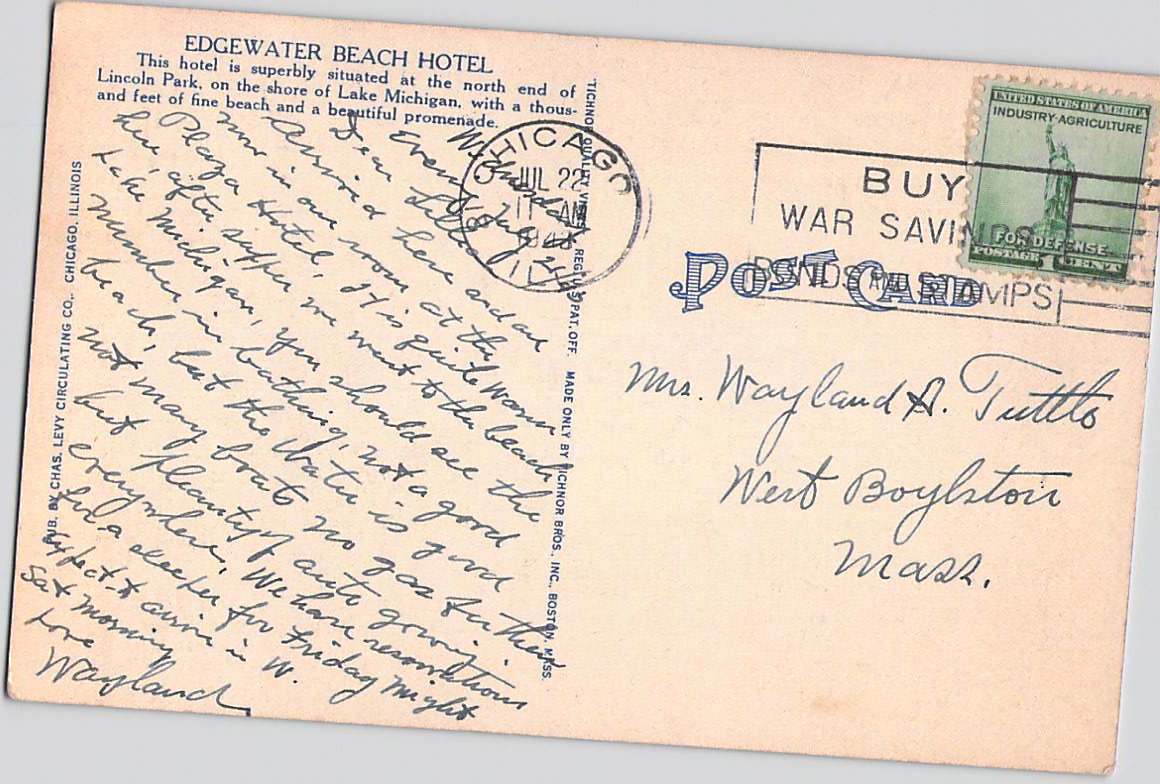 EDGEWATER BEACH HOTEL
This hotel is superbly situated at the north end of
Lincoln Park, on the shore of Lake Michigan, with a thous-
and feet of fine beach and a beautiful promenade.
Wednesday
Evening July
Dear
Arrived here and are
now in our room at the
Plaza Hotel, It is quite warm
here, after supper we went to the beach
Lake Michigan, you should see the
number in bathing, not a good
beach, but the water is good
not many boats no gas for them
but pleanty of auto going
everywhere, We have reservations
for a sleeper for Friday night
expect to arrive in W.
Sat morning
Love
Wayland
PUB. BY CHAS. LEVY CIRCULATING CO., CHICAGO, ILLINOIS
"TICHNOR QUALITY VIEWS," REG. U. S. PAT. OFF. MADE ONLY BY TICHNOR BROS., INC., BOSTON, MASS.
CHICAGO
JUL 22
11 AM
ILL
BUY
WAR SAVINGS
BONDS AND STAMPS
UNITED STATES OF AMERICA
INDUSTRY·AGRICULTURE
FOR DEFENSE
POSTAGE 1 CENT
POST CARD
Mrs. Wayland A. Tuttle
West Boylston
Mass.